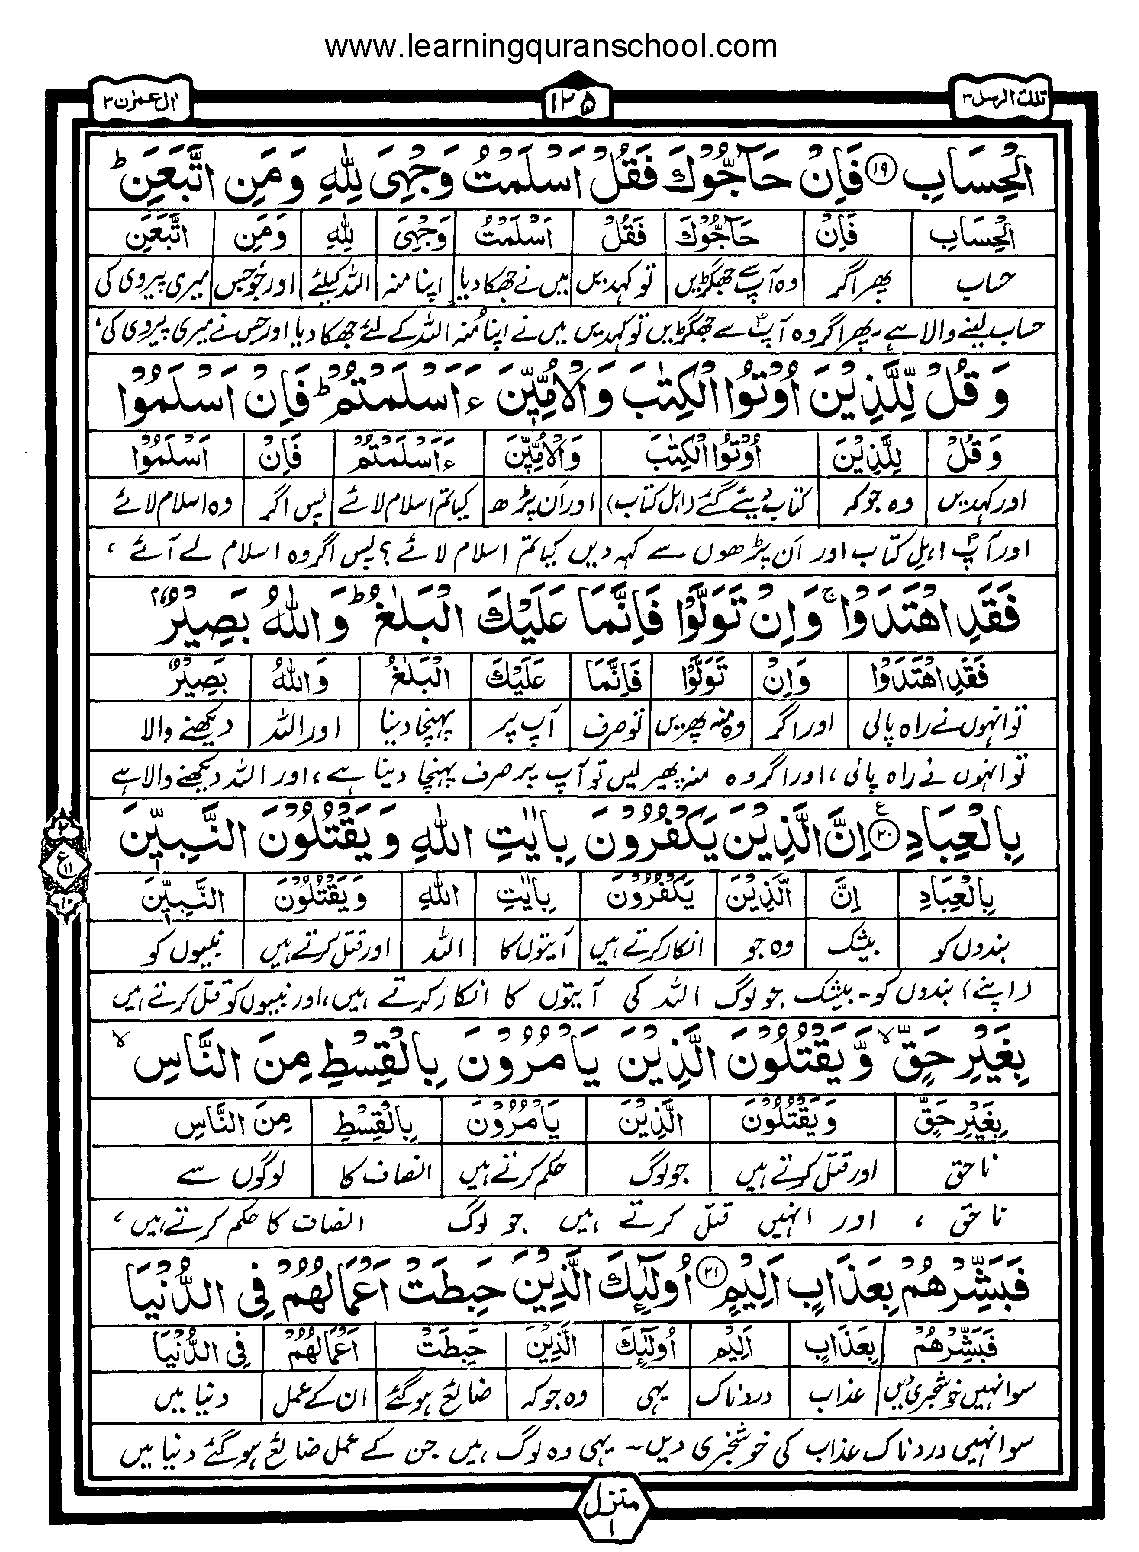 www.learningquranschool.com
تلك الرسل ٣
١٢٥
اٰل عمرٰن ٣
الْحِسَابِ ﴿١٩﴾ فَاِنْ حَآجُّوْكَ فَقُلْ اَسْلَمْتُ وَجْهِيَ لِلّٰهِ وَمَنِ اتَّبَعَنِ ؕ
الْحِسَابِ فَاِنْ حَآجُّوْكَ فَقُلْ اَسْلَمْتُ وَجْهِيَ لِلّٰهِ وَمَنِ اتَّبَعَنِ
حساب پھر اگر وہ آپ سے جھگڑیں تو کہدیں میں نے جھکا دیا اپنا منہ اللہ کیلئے اور جو جس میری پیروی کی
حساب لینے والا ہے۔ پھر اگر وہ آپؐ سے جھگڑیں تو کہدیں میں نے اپنا مُنہ اللہ کے لئے جھکا دیا اور جس نے میری پیروی کی،
وَقُلْ لِّلَّذِيْنَ اُوْتُوا الْكِتٰبَ وَالْاُمِّيّٖنَ ءَاَسْلَمْتُمْ ؕ فَاِنْ اَسْلَمُوْا
وَقُلْ لِلَّذِيْنَ اُوْتُوا الْكِتٰبَ وَالْاُمِّيّٖنَ ءَاَسْلَمْتُمْ فَاِنْ اَسْلَمُوْا
اور کہدیں وہ جو کہ کتاب دیئے گئے (اہل کتاب) اور اَن پڑھ کیا تم اسلام لائے پس اگر وہ اسلام لائے
اور آپؐ اہلِ کتاب اور اَن پڑھوں سے کہہ دیں کیا تم اسلام لائے؟ پس اگر وہ اسلام لے آئے،
فَقَدِ اهْتَدَوْا ۚ وَاِنْ تَوَلَّوْا فَاِنَّمَا عَلَيْكَ الْبَلٰغُ ؕ وَاللّٰهُ بَصِيْرٌۢ
فَقَدِ اهْتَدَوْا وَاِنْ تَوَلَّوْا فَاِنَّمَا عَلَيْكَ الْبَلٰغُ وَاللّٰهُ بَصِيْرٌ
تو انہوں نے راہ پالی اور اگر وہ منہ پھیریں تو صرف آپ پر پہنچا دینا اور اللہ دیکھنے والا
تو انہوں نے راہ پالی، اور اگر وہ منہ پھیر لیں تو آپ پر صرف پہنچا دینا ہے، اور اللہ دیکھنے والا ہے
بِالْعِبَادِ ﴿٢٠﴾ اِنَّ الَّذِيْنَ يَكْفُرُوْنَ بِاٰيٰتِ اللّٰهِ وَيَقْتُلُوْنَ النَّبِيّٖنَ
بِالْعِبَادِ اِنَّ الَّذِيْنَ يَكْفُرُوْنَ بِاٰيٰتِ اللّٰهِ وَيَقْتُلُوْنَ النَّبِيّٖنَ
بندوں کو بیشک وہ جو انکار کرتے ہیں آیتوں کا اللہ اور قتل کرتے ہیں نبیوں کو
(اپنے) بندوں کو۔ بیشک جو لوگ اللہ کی آیتوں کا انکار کرتے ہیں، اور نبیوں کو قتل کرتے ہیں
بِغَيْرِ حَقٍّ ۙ وَّيَقْتُلُوْنَ الَّذِيْنَ يَاْمُرُوْنَ بِالْقِسْطِ مِنَ النَّاسِ ۙ
بِغَيْرِ حَقٍّ وَيَقْتُلُوْنَ الَّذِيْنَ يَاْمُرُوْنَ بِالْقِسْطِ مِنَ النَّاسِ
ناحق اور قتل کرتے ہیں جو لوگ حکم کرتے ہیں انصاف کا لوگوں سے
ناحق، اور انہیں قتل کرتے ہیں جو لوگ انصاف کا حکم کرتے ہیں،
فَبَشِّرْهُمْ بِعَذَابٍ اَلِيْمٍ ﴿٢١﴾ اُولٰٓئِكَ الَّذِيْنَ حَبِطَتْ اَعْمَالُهُمْ فِي الدُّنْيَا
فَبَشِّرْهُمْ بِعَذَابٍ اَلِيْمٍ اُولٰٓئِكَ الَّذِيْنَ حَبِطَتْ اَعْمَالُهُمْ فِي الدُّنْيَا
سو انہیں خوشخبری دیں عذاب دردناک یہی وہ جو کہ ضائع ہو گئے ان کے عمل دنیا میں
سو انہیں دردناک عذاب کی خوشخبری دیں۔ یہی وہ لوگ ہیں جن کے عمل ضائع ہو گئے دنیا میں
منزل
١